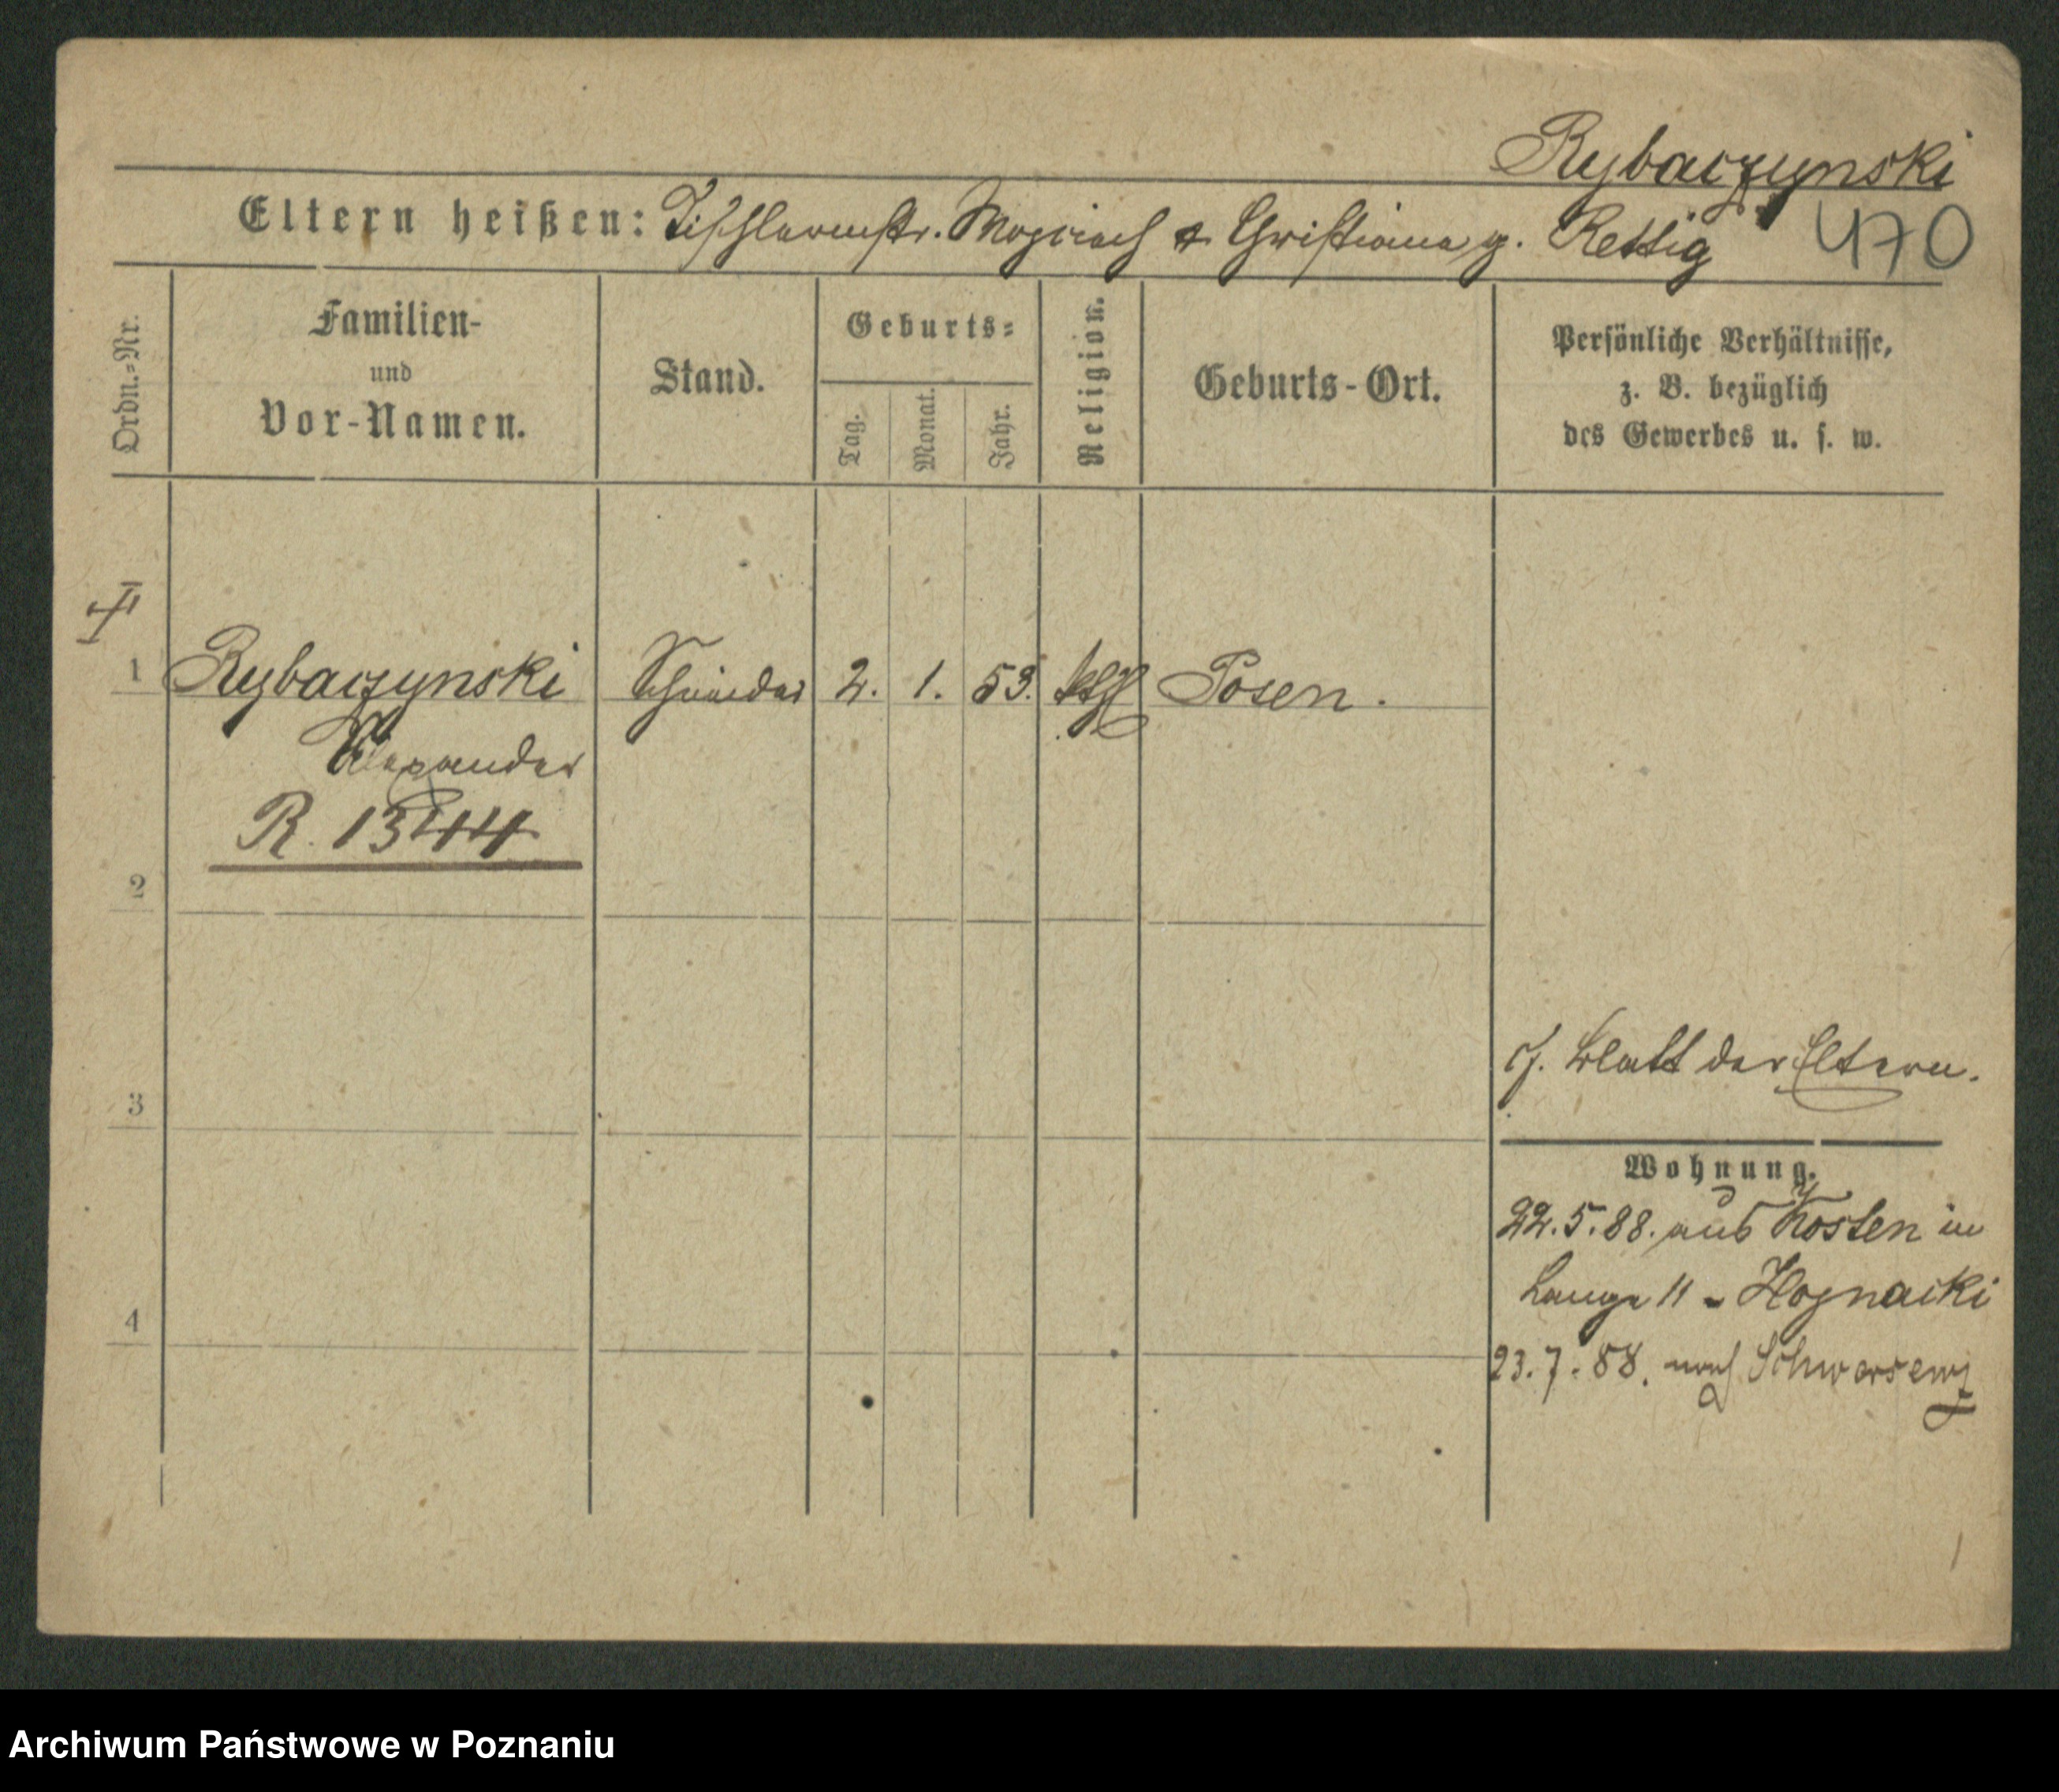 Rybaczynski
Eltern heißen: Tischlermstr. & Christiana g. Rettig 470
Ordn.-Nr.
Familien-
und
Vor-Namen.
Stand.
Geburts-
Tag.
Monat.
Jahr.
Religion.
Geburts-Ort.
Persönliche Verhältnisse,
z. B. bezüglich
des Gewerbes u. s. w.
1 Rybaczynski Schneider 2. 1. 53. kth Posen.
Alexander
R. 1344
2
3
4
cf. Blatt der Eltern.
Wohnung.
22.5.88. aus Kosten in
Lange 11 - Hoynacki
23.7.88. nach Schwersenz
Archiwum Państwowe w Poznaniu